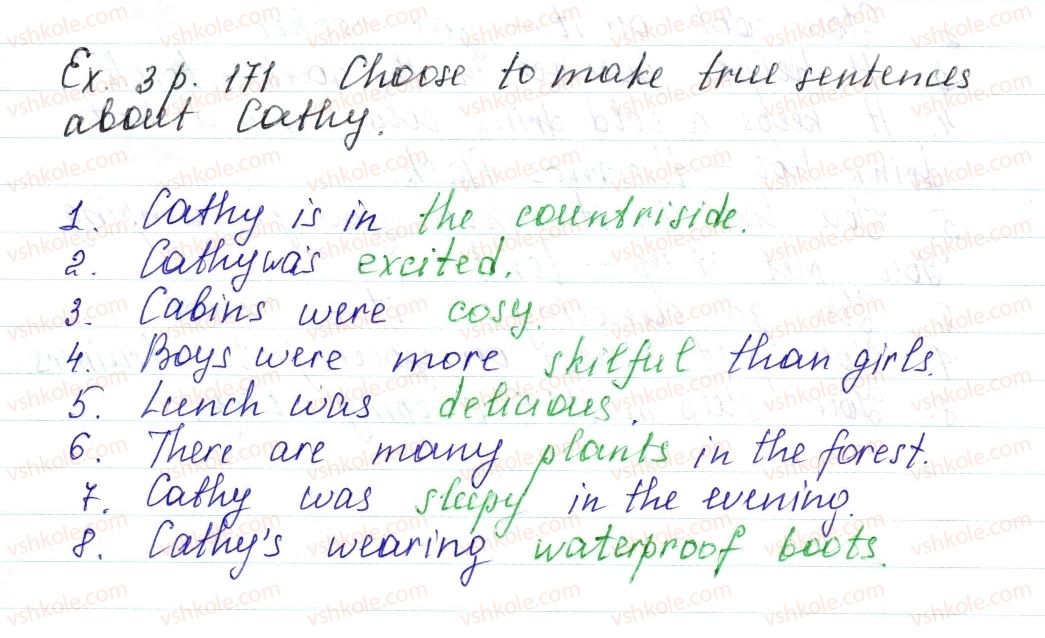 Ex. 3 p. 171 Choose to make true sentences
about Cathy.
1. Cathy is in the countriside.
2. Cathy was excited.
3. Cabins were cosy.
4. Boys were more skilful than girls.
5. Lunch was delicious.
6. There are many plants in the forest.
7. Cathy was sleepy in the evening.
8. Cathy's wearing waterproof boots.